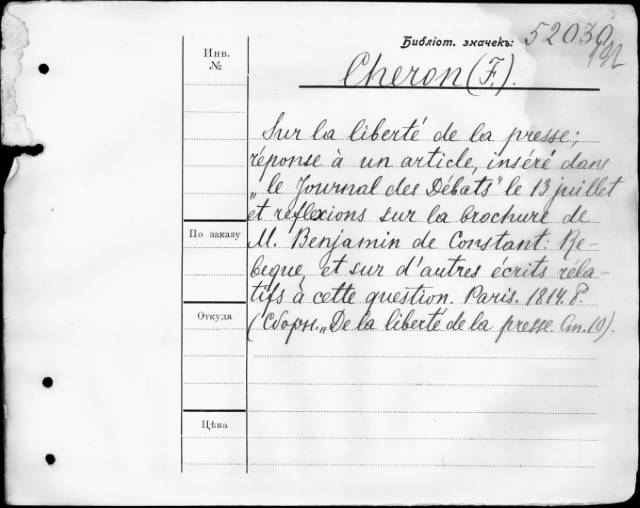 Библіот. значекъ: 52030
192
Инв.
№
Cheron (F.).
Sur la liberté de la presse;
réponse à un article, inséré dans
„le Journal des Débats" le 13 juillet
et réflexions sur la brochure de
По заказу
M. Benjamin de Constant: Re-
beque, et sur d'autres écrits réla-
tifs à cette question. Paris. 1814. 8°.
Откуда
(Сборн. „De la liberté de la presse. Ал. 10).
Цѣна